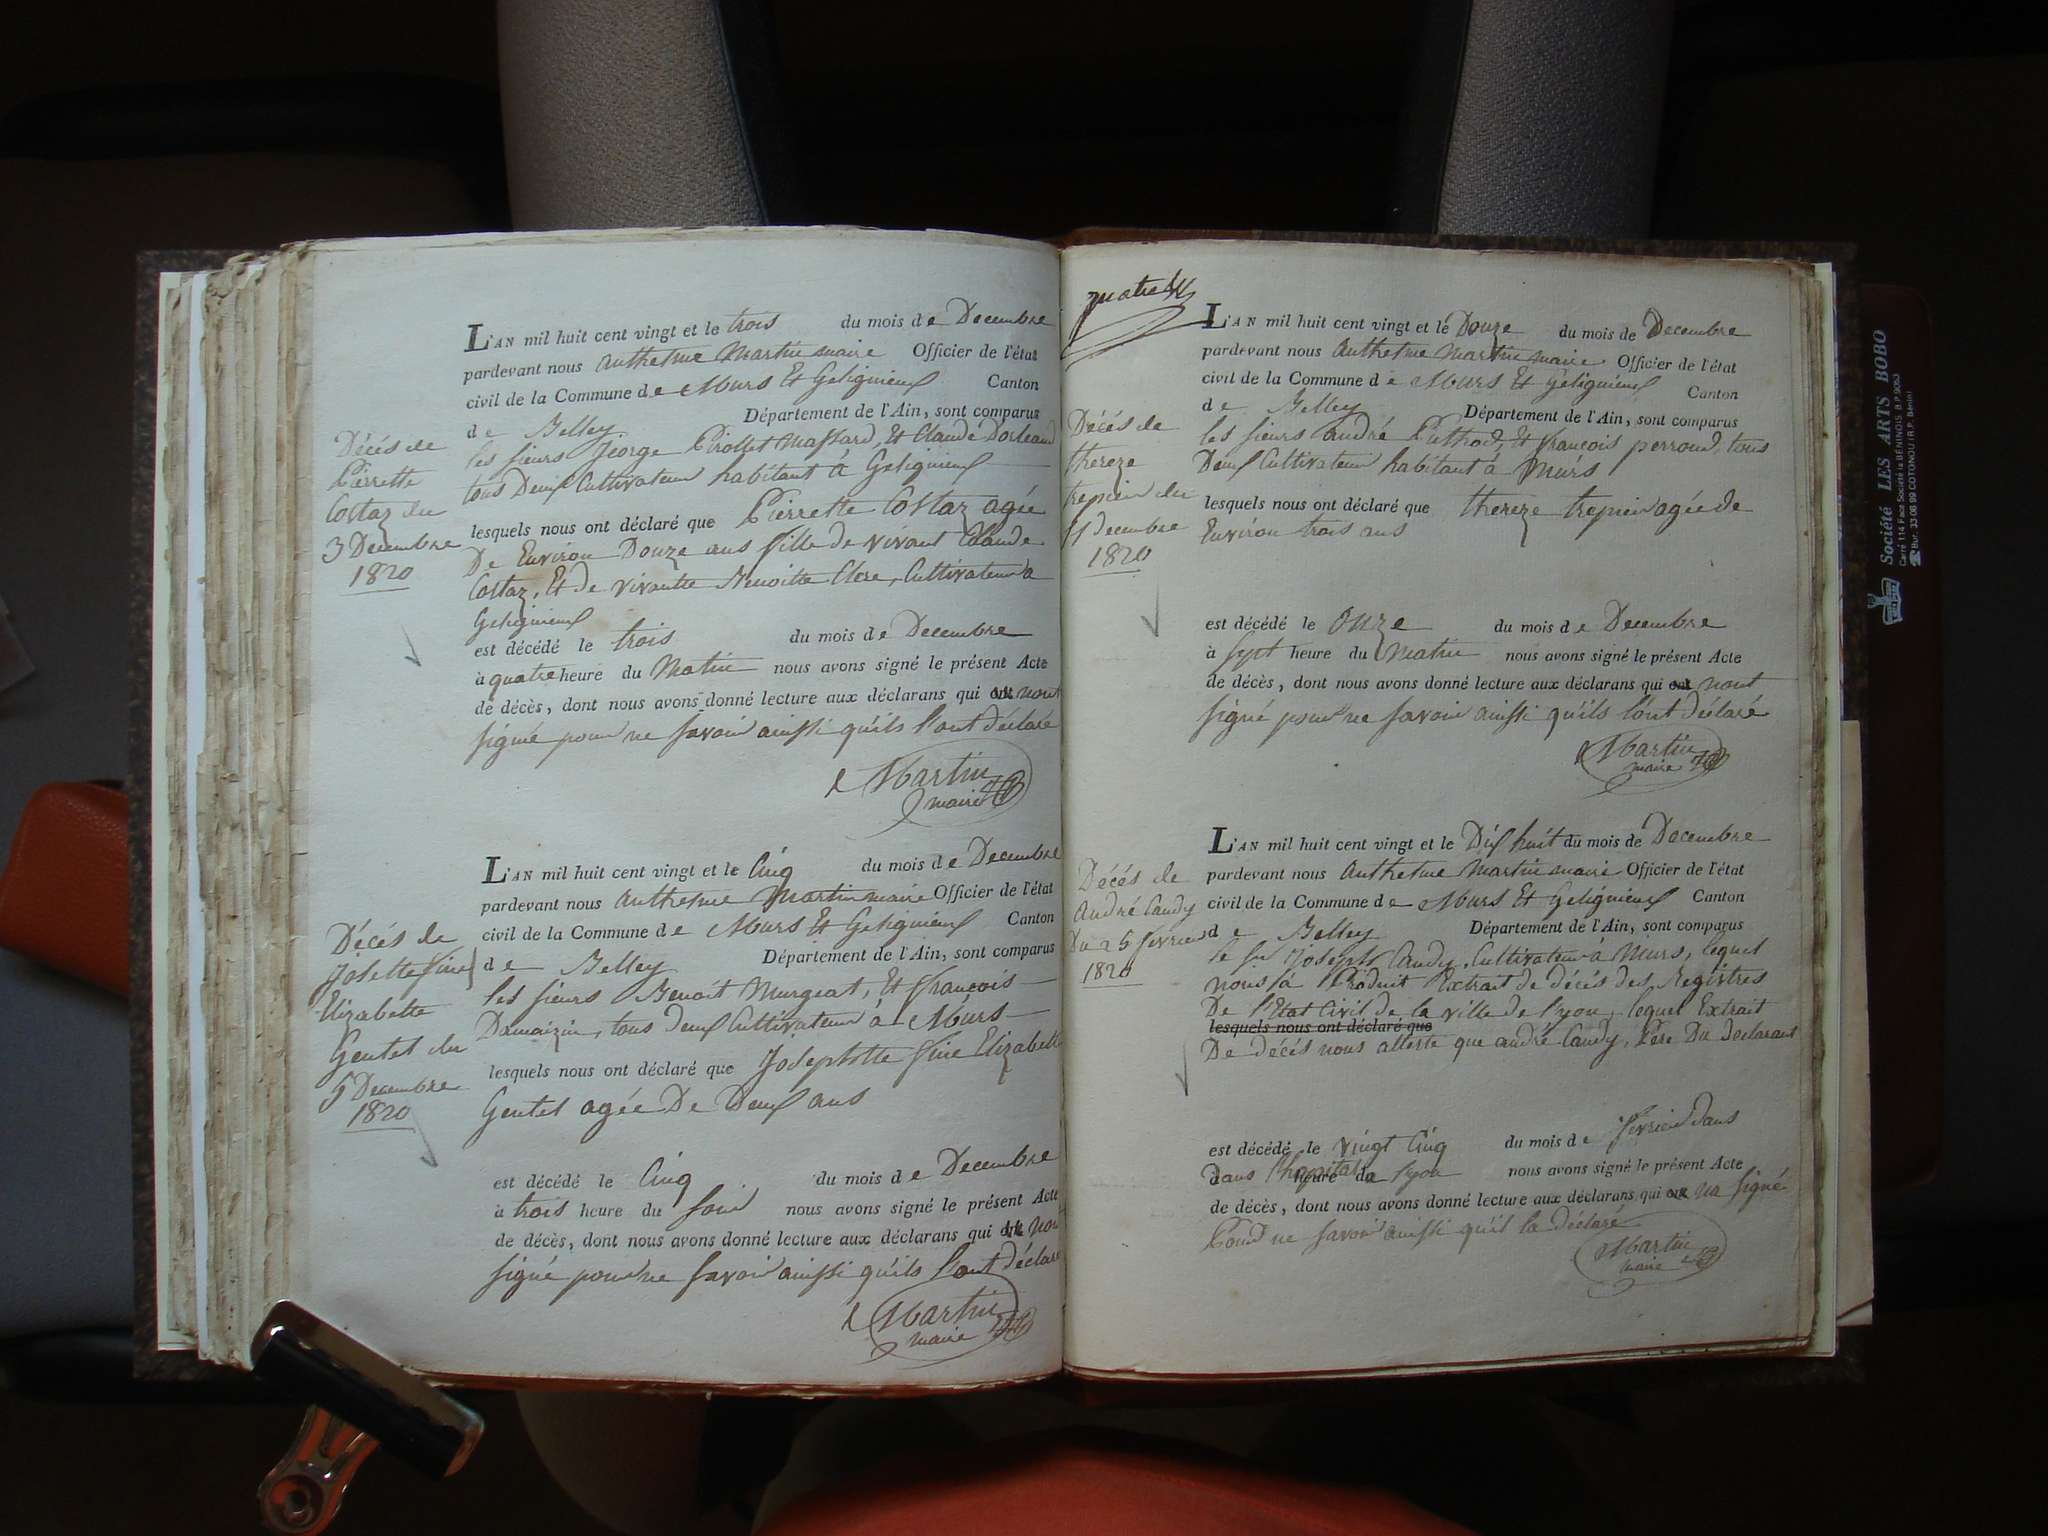 L'AN mil huit cent vingt et le trois du mois de Decembre
pardevant nous anthelme Martin maire Officier de l'état
civil de la Commune de Murs Et Gelignieux Canton
de Belley Département de l'Ain, sont comparus
les sieurs Jeorge Pirollet Massard, Et Claude Dorleand
tous Deux Cultivateur habitant à Gelignieux
lesquels nous ont déclaré que Pierrette Costaz agée
De Environ Douze ans fille de vivant Claude
Costaz, Et de vivantte Benoitte Clere, Cultivateur a
Gelignieux
est décédé le trois du mois de Decembre
à quatre heure du Matin nous avons signé le présent Acte
de décès, dont nous avons donné lecture aux déclarans qui ont nont
signé pour ne savoir ainssi qu'ils l'ont déclaré
Martin
maire
Décés de
Pierrette
Costaz du
3 Decembre
1820
L'AN mil huit cent vingt et le Cinq du mois de Decembre
pardevant nous anthelme Martin maire Officier de l'état
civil de la Commune de Murs Et Gelignieux Canton
de Belley Département de l'Ain, sont comparus
les sieurs Benoit Murgeat, Et francois
Damaizin, tous deux Cultivateur à Murs
lesquels nous ont déclaré que Josephtte fine Elizabett
Gentet agée De Deux ans
est décédé le Cinq du mois de Decembre
à trois heure du soir nous avons signé le présent Acte
de décès, dont nous avons donné lecture aux déclarans qui ont nont
signé pour ne savoir ainssi qu'ils l'ont déclaré
Martin
maire
Décés de
Josette fine
Elizabette
Gentet du
5 Decembre
1820
L'AN mil huit cent vingt et le Douze du mois de Decembre
pardevant nous anthelme Martin maire Officier de l'état
civil de la Commune de Murs Et Gelignieux Canton
de Belley Département de l'Ain, sont comparus
les sieurs andré Puthod, Et francois perroud, tous
Deux Cultivateur habitant à Murs
lesquels nous ont déclaré que thereze trepier agée de
Environ trois ans
est décédé le Onze du mois de Decembre
à sept heure du Matin nous avons signé le présent Acte
de décès, dont nous avons donné lecture aux déclarans qui ont nont
signé pour ne savoir ainssi qu'ils l'ont déclaré
Martin
maire
Décés de
thereze
trepier du
11 Decembre
1820
L'AN mil huit cent vingt et le Dix huit du mois de Decembre
pardevant nous anthelme Martin maire Officier de l'état
civil de la Commune de Murs Et Gelignieux Canton
de Belley Département de l'Ain, sont comparus
le sr Joseph Candy, Cultivateur à Murs, lequel
nous à Produit Extrait de décés des Registres
De l'Etat Civil de la ville de lyon, lequel Extrait
lesquels nous ont déclaré que
De décés nous atteste que andré Candy, Pere Du declarant
est décédé le vingt Cinq du mois de fevrier dans
Dans l'hopital heure da lyon nous avons signé le présent Acte
de décès, dont nous avons donné lecture aux déclarans qui ont na signé
Pour ne savoir ainssi qu'il la déclaré
Martin
maire
Décés de
André Candy
Du 25 fevrier
1820
Société LES ARTS BOBO